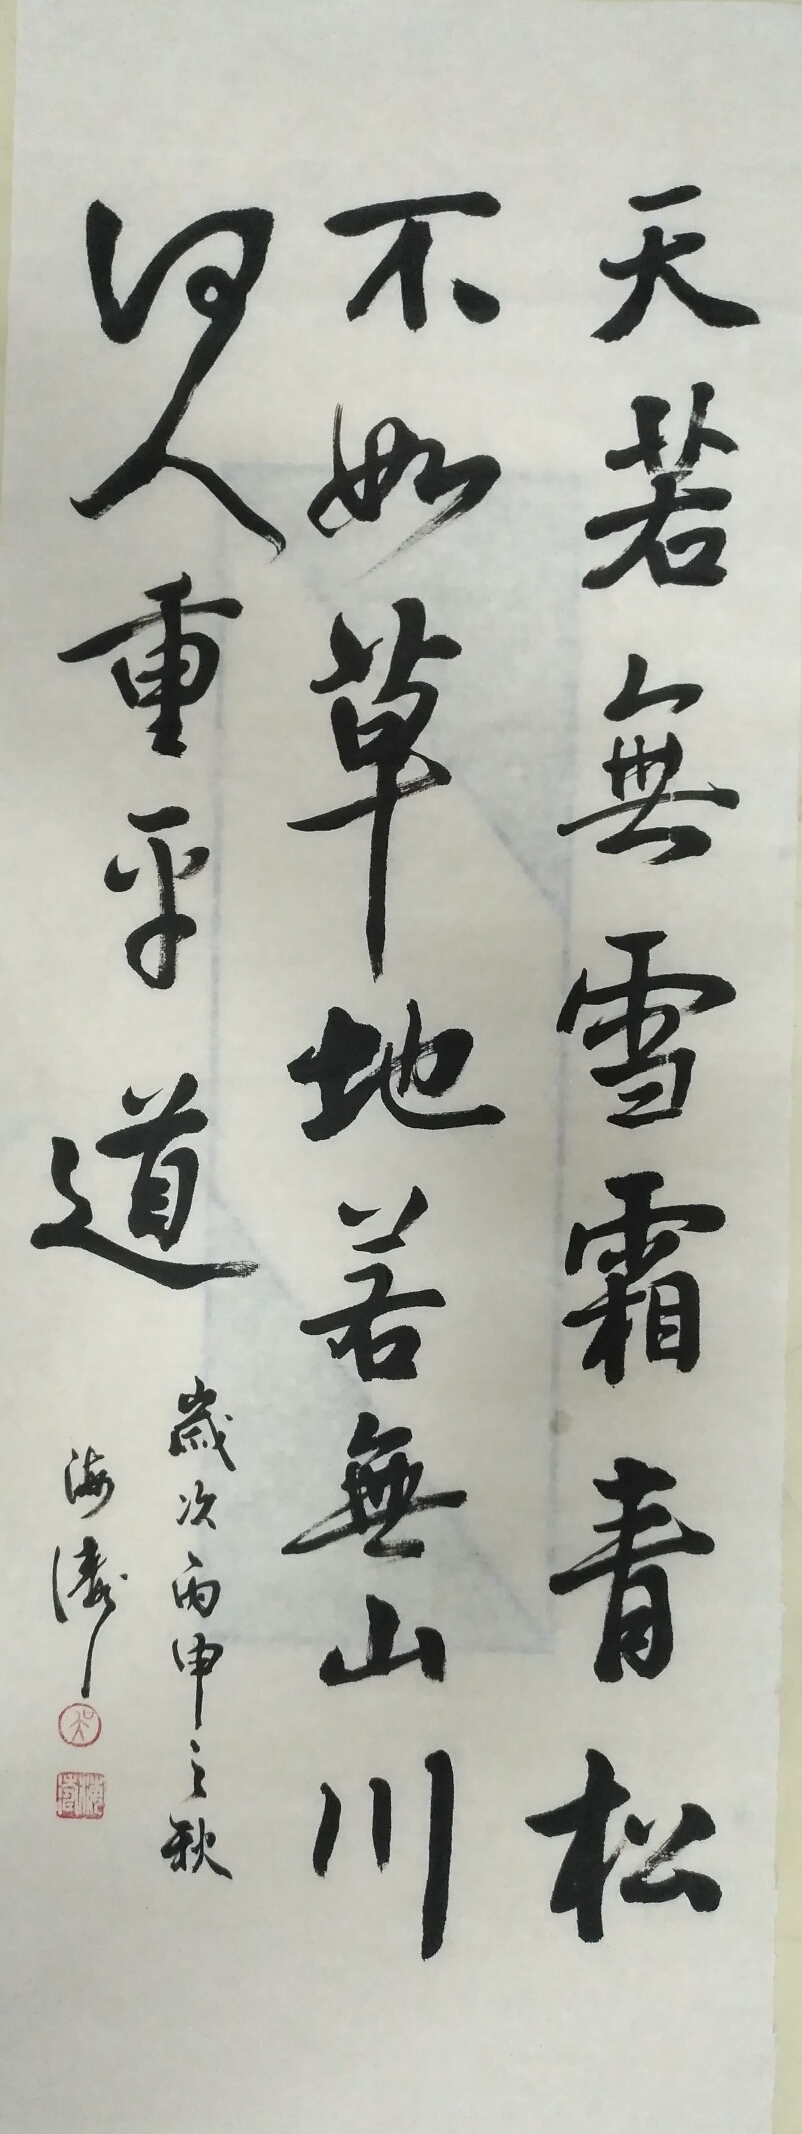 天若無雪霜青松
不如草地若無山川
何人重平道
歲次丙申之秋
海濤